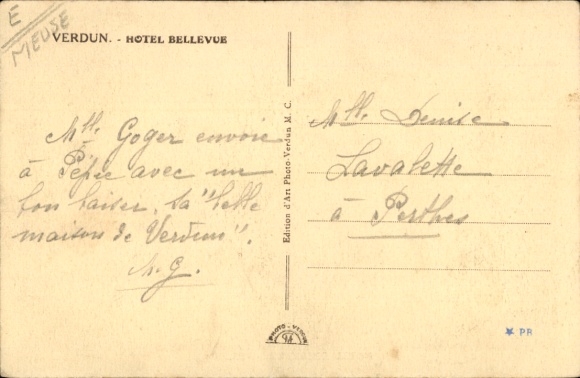 E
MEUSE
VERDUN. - HOTEL BELLEVUE
Mlle Goger envoie
à Pépée avec un
bon baiser, sa "belle
maison de Verdun".
M. G.
Edition d'Art Photo-Verdun M. C.
Mlle. Denise
Lavalette
à Perthes
PHOTO - VERDUN
94
PR